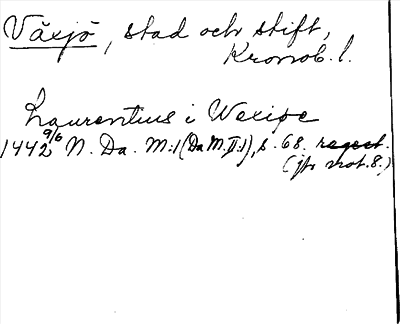 Växjö, stad och stift,
Kronob. l.
Laurentius i Wexiøe
1442 9/6 N. Da. M:1 (Da M. II:1), s. 68. regest.
(jfr not. 8.)